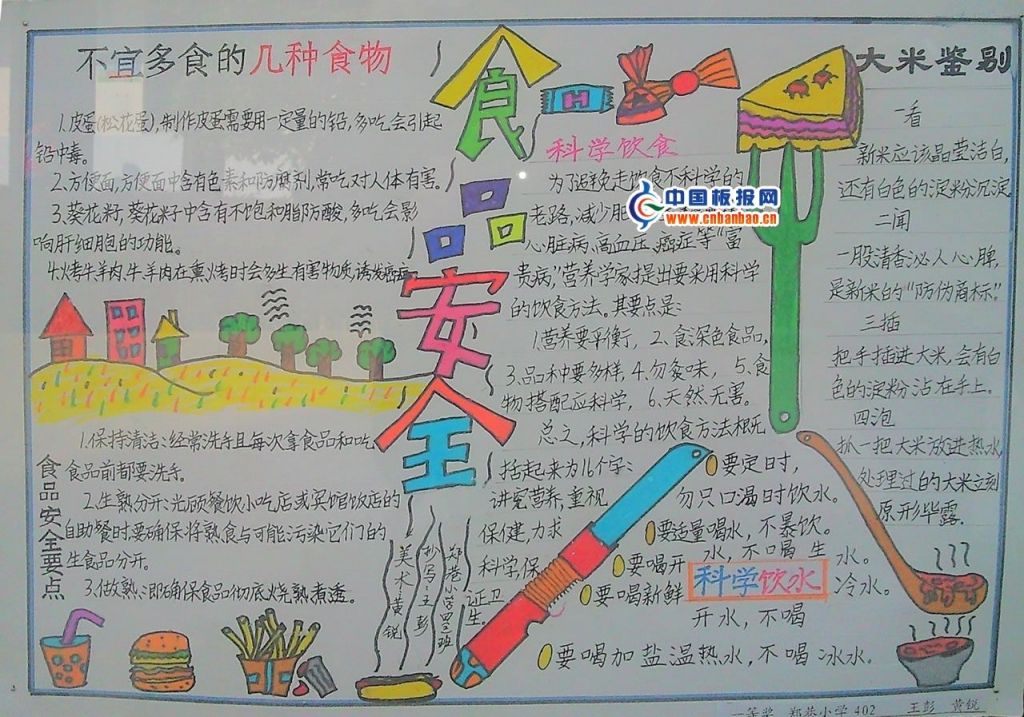 不宜多食的几种食物
1.皮蛋(松花蛋),制作皮蛋需要用一定量的铅,多吃会引起
铅中毒。
2.方便面,方便面中含有色素和防腐剂,常吃对人体有害。
3.葵花籽,葵花籽中含有不饱和脂防酸,多吃会影
响肝细胞的功能。
4.火烤牛羊肉,牛羊肉在熏烤时会多生有害物质,诱发癌症
食品安全要点
1.保持清洁:经常洗手且每次拿食品和吃
食品前都要洗手。
2.生熟分开:光顾餐饮小吃店或宾馆饭店的
自助餐时,要确保将熟食与可能污染它们的
生食品分开。
3.做熟:即确保食品彻底烧熟煮透。
食品安全
H
科学饮食
为了避免走饮食不科学的
老路,减少肥
心脏病,高血压,癌症等"富
贵病"营养学家提出要采用科学
的饮食方法。其要点是:
1.营养要平衡, 2.食深色食品,
3.品种要多样, 4.勿贪味, 5.食
物搭配应科学, 6.天然无害。
总之,科学的饮食方法概无
括起来为几个字:
讲究营养,重视
保健,力求
科学,保
证卫
生。
美术:黄锐
抄写:王彭
郑巷小学四2班
中国板报网
www.cnbanbao.cn
大米鉴别
一看
新米应该晶莹洁白,
还有白色的淀粉沉淀
二闻
一股清香沁人心脾,
是新米的"防伪商标"。
三插
把手插进大米,会有白
色的淀粉沾在手上。
四泡
抓一把大米放进热水
处理过的大米立刻
原形毕露.
科学饮水
要定时,
勿只口渴时饮水。
要适量喝水,不暴饮。
要喝开水,不喝生水。
要喝新鲜开水,不喝冷水。
要喝加盐温热水,不喝冰水。
一等奖 郑巷小学402 王彭 黄锐